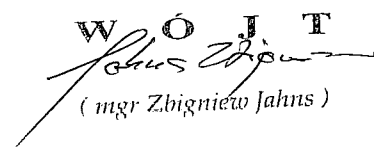 WÓJT
Jahns Zbigniew
( mgr Zbigniew Jahns )